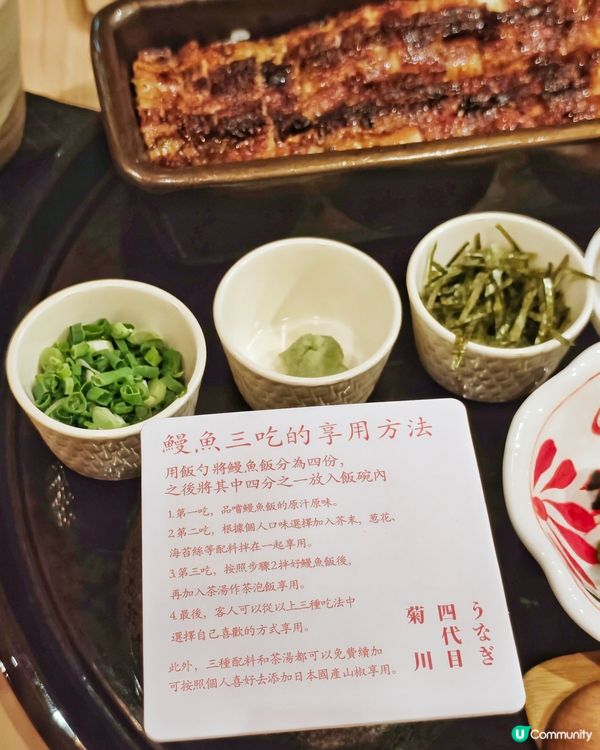 鰻魚三吃的享用方法
用飯勺將鰻魚飯分為四份，
之後將其中四分之一放入飯碗內
1.第一吃，品嚐鰻魚飯的原汁原味。
2.第二吃，根據個人口味選擇加入芥末，蔥花、
海苔絲等配料拌在一起享用。
3.第三吃，按照步驟2拌好鰻魚飯後，
再加入茶湯作茶泡飯享用。
4.最後，客人可以從以上三種吃法中
選擇自己喜歡的方式享用。
此外，三種配料和茶湯都可以免費續加
可按照個人喜好去添加日本國產山椒享用。
うなぎ
四代目
菊川
U Community